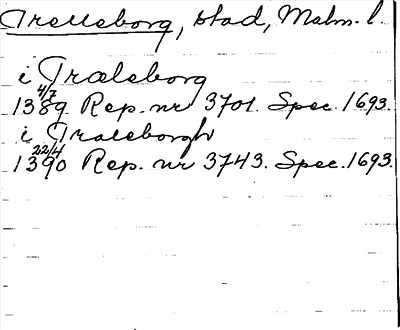 Trelleborg, stad, Malm. l.
i Trælæborg
4/7
1389 Rep. nr 3701. Spec. 1693.
i Træleborgh
22/4
1390 Rep. nr 3743. Spec. 1693.